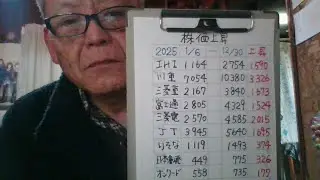 株価上昇
2025 1/6 ー 12/30 上昇
IHI 1164 2754 1590
川重 7054 10380 3326
三菱重 2167 3840 1673
富士通 2805 4329 1524
三菱電 2570 4585 2015
JT 3945 5640 1695
りそな 1119 1493 374
449 775 326
オンワード 558 735 177